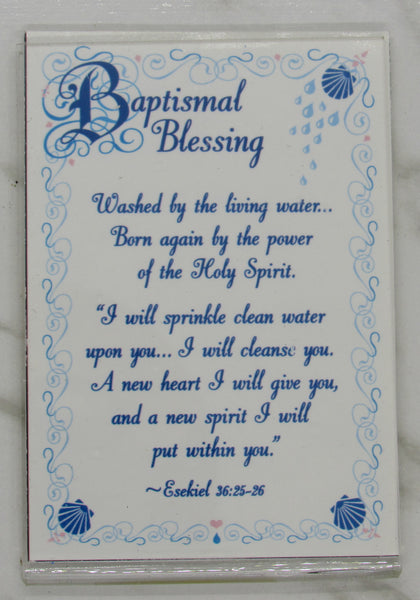 Baptismal
Blessing
Washed by the living water...
Born again by the power
of the Holy Spirit.
"I will sprinkle clean water
upon you... I will cleanse you.
A new heart I will give you,
and a new spirit I will
put within you."
~Esekiel 36:25-26